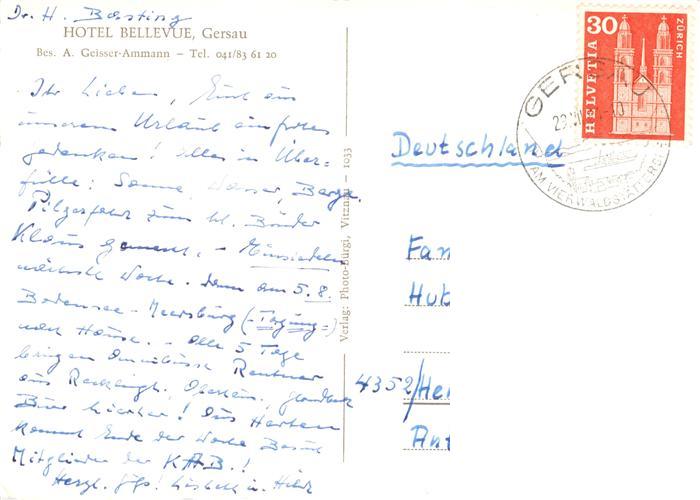 Dr. H. Basting
HOTEL BELLEVUE, Gersau
Bes. A. Geisser-Ammann – Tel. 041/83 61 20
Ihr Lieben, Euch ein
unserem Urlaub ein frohes
gedenken! Alles in Über-
fülle: Sonne, Wasser, Berge.
Pilgerfahrt zum hl. Bruder
Klaus gemacht. – Einsiedeln
nächste Woche. Dann am 5.8.
Bodensee – Meersburg (-Tagung-)
nach Hause. – Alle 5 Tage
bringen Omnibusse Rentner
aus Recklingh., Oberhsn., Gladbeck
hierher! Aus Herten
kommt Ende der Woche Besuch
Mitglieder der KAB.!
Herzl.
Verlag: Photo-Bürgi, Vitznau – 1033
30
HELVETIA
ZÜRICH
GERSAU
AM VIERWALDSTÄTTERSEE
Deutschland
Fam
Hub
4352/Her
Ant